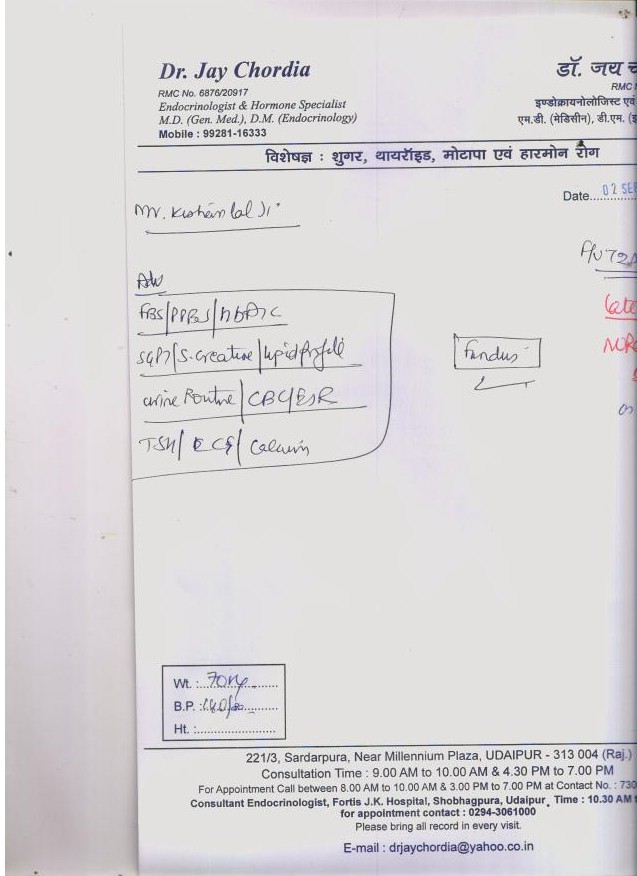 Dr. Jay Chordia
RMC No. 6876/20917
Endocrinologist & Hormone Specialist
M.D. (Gen. Med.), D.M. (Endocrinology)
Mobile : 99281-16333
डॉ. जय च
RMC
इण्डोक्रायनोलोजिस्ट एवं
एम.डी. (मेडिसीन), डी.एम. (इ
विशेषज्ञ : शुगर, थायरॉइड, मोटापा एवं हारमोन रोग
Date 02 SEP
Mr. Kishan lal Ji
Adv
FBS/PPBS/HbA1C
SGPT/S.Creatine/Lipid profile
Urine Routine/CBC/ESR
TSH/ECG/Calcium
Fundus
F/U T2D
Wt. : 70 kg
B.P. :
Ht. :
221/3, Sardarpura, Near Millennium Plaza, UDAIPUR - 313 004 (Raj.)
Consultation Time : 9.00 AM to 10.00 AM & 4.30 PM to 7.00 PM
For Appointment Call between 8.00 AM to 10.00 AM & 3.00 PM to 7.00 PM at Contact No. : 730
Consultant Endocrinologist, Fortis J.K. Hospital, Shobhagpura, Udaipur, Time : 10.30 AM
for appointment contact : 0294-3061000
Please bring all record in every visit.
E-mail : drjaychordia@yahoo.co.in